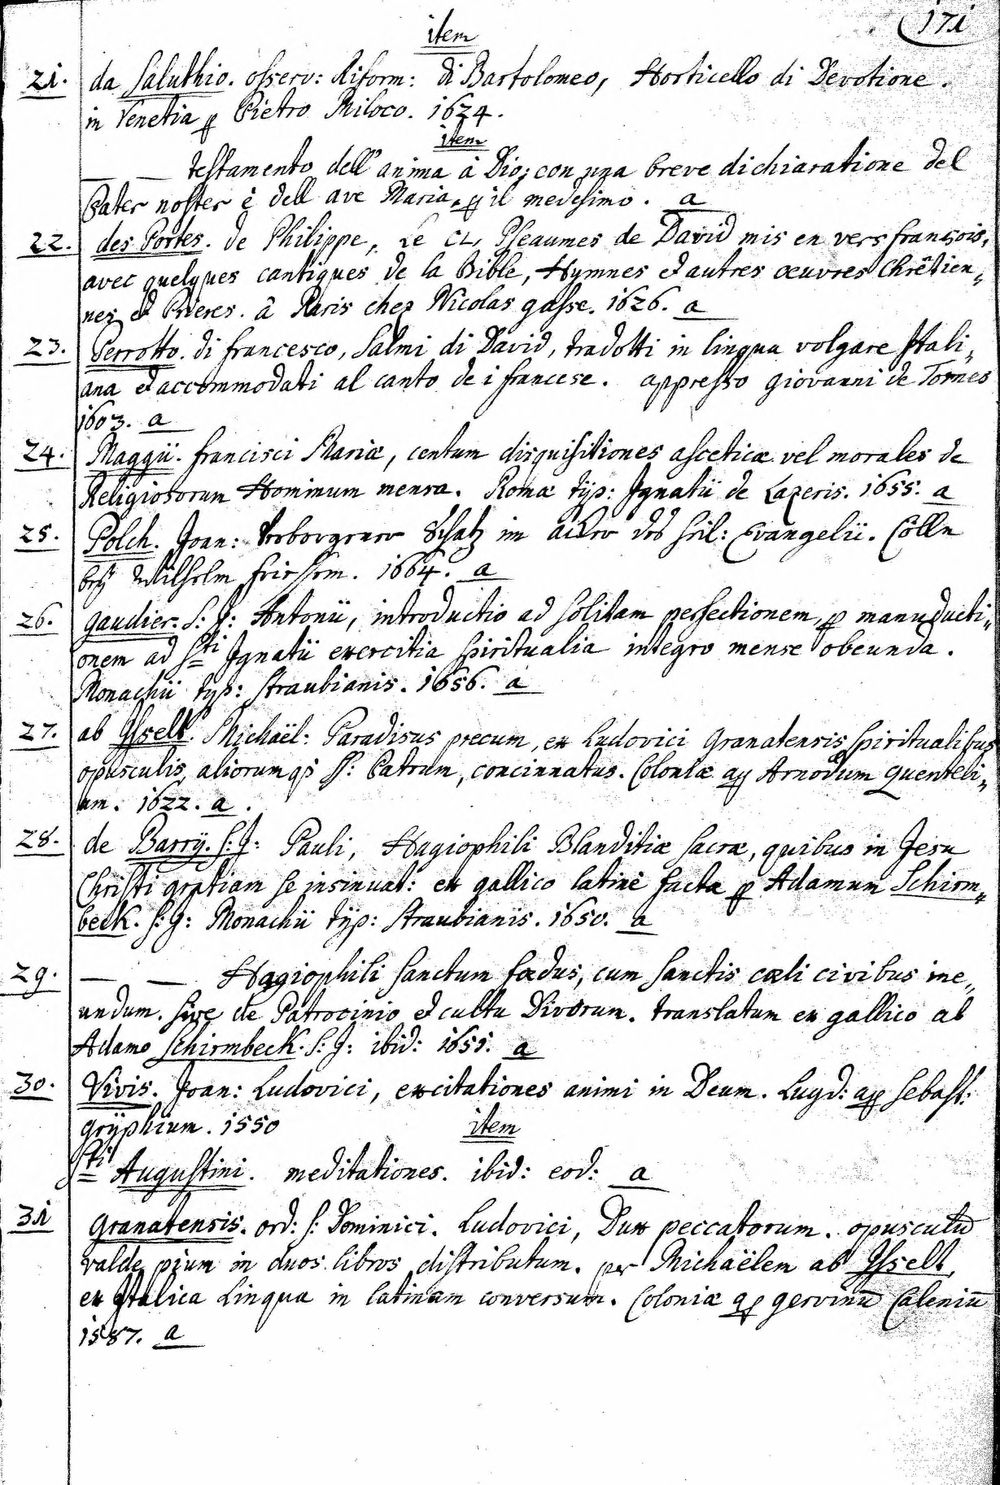 171
item
21. da Saluthio. osserv: Riform: di Bartolomeo, Horticello di Devotione.
in Venetia ꝑ Pietro Miloco. 1624.
item
— — testamento dell' anima â Dio; con una breve dichiaratione del
Pater noster è dell ave Maria, ꝑ il medesimo. a
22. des Portes. de Philippe, Le CL, Pseaumes de David mis en vers françois,
avec quelques cantiques de la Bible, Hymnes et autres œuvres Chrêtien-
nes et Prieres. â Paris chez Nicolas gasse. 1626. a
23. Perrotto. di francesco, Salmi di David, tradotti in lingua volgare Itali-
ana et accommodati al canto de i francese. appresso giovanni de Tornes
1603. a
24. Maggii. francisci Mariæ, centum disquisitiones asceticæ vel morales de
Religiosorum Hominum mensa. Romæ tÿp: Ignatii de Lazeris. 1655. a
25. Polch. Joan: Verborgener Schatz im acker des heil: Evangelii. Cölln
beÿ Wilhelm friessem. 1664. a
26. gaudier. S: J: Antonii, introductio ad solidam perfectionem, ꝑ manuducti-
onem ad Sti Ignatii exercitia spiritualia integro mense obeunda.
Monachii tÿp: Straubianis. 1656. a
27. ab Ysselt. Michaël: Paradisus precum, ex Ludovici Granatensis spiritualibus
opusculis, aliorumqꝫ SS: Patrum, concinnatus. Coloniæ aꝑ Arnodum Quenteli-
um. 1622. a.
28. de Barrÿ. S: J: Pauli, Hagiophili Blanditiæ sacræ, quibus in Jesu
Christi gratiam se insinuat: ex gallico latinè factæ ꝑ Adamum Schirm-
beck. S: J: Monachii tÿp: Straubianis. 1650. a
29. — — Hagiophili sanctum fœdus, cum sanctis cæli civibus ine-
undum. sive de Patrocinio et cultu Divorum. translatum ex gallico ab
Adamo Schirmbeck. S: J: ibid: 1651. a
30. Vivis. Joan: Ludovici, excitationes animi in Deum. Lugd: aꝑ Sebast:
grÿphium. 1550
item
Sti Augustini. meditationes. ibid: eod: a
31 Granatensis. ord: S: Dominici. Ludovici, Dux peccatorum. opusculū
valde pium in duos libros distributum. per Michaëlem ab Ysselt,
ex Italica Lingua in latinam conversum. Coloniæ aꝑ gervinū Caleniū
1587. a